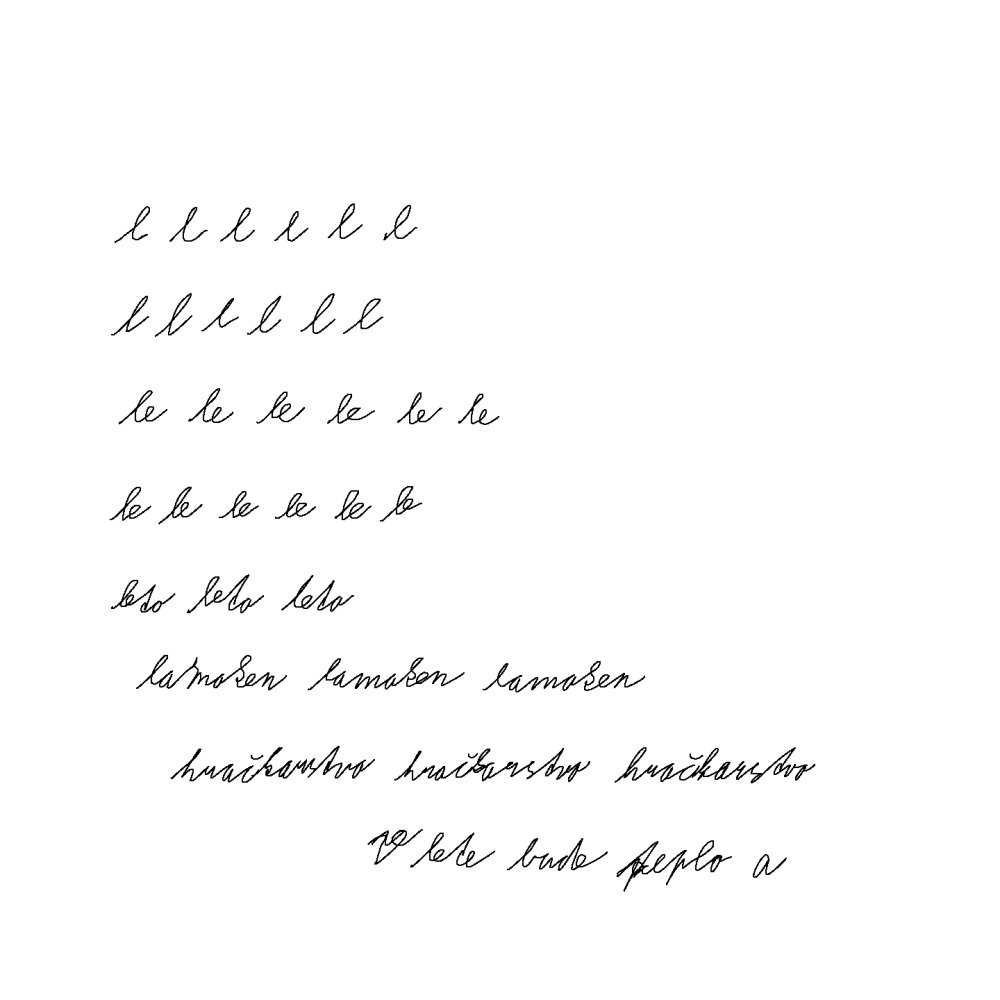 l l l l l l
l l l l l l
le le le le le le
le le le le le le
leto leto leto
lamošen lamošen lamošen
hračkarstvo hračkarstvo hračkarstvo
V lete bude teplo a